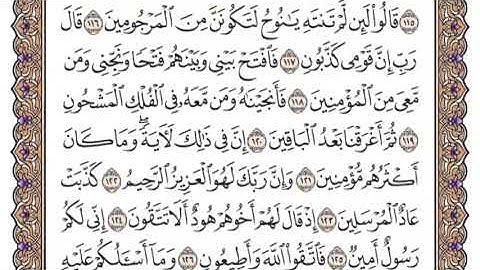 ﴿١١٥﴾ قَالُوا۟ لَئِن لَّمْ تَنتَهِ يَـٰنُوحُ لَتَكُونَنَّ مِنَ ٱلْمَرْجُومِينَ ﴿١١٦﴾ قَالَ
رَبِّ إِنَّ قَوْمِى كَذَّبُونِ ﴿١١٧﴾ فَٱفْتَحْ بَيْنِى وَبَيْنَهُمْ فَتْحًا وَنَجِّنِى وَمَن
مَّعِىَ مِنَ ٱلْمُؤْمِنِينَ ﴿١١٨﴾ فَأَنجَيْنَـٰهُ وَمَن مَّعَهُۥ فِى ٱلْفُلْكِ ٱلْمَشْحُونِ
﴿١١٩﴾ ثُمَّ أَغْرَقْنَا بَعْدُ ٱلْبَاقِينَ ﴿١٢٠﴾ إِنَّ فِى ذَٰلِكَ لَـَٔايَةً ۖ وَمَا كَانَ
أَكْثَرُهُم مُّؤْمِنِينَ ﴿١٢١﴾ وَإِنَّ رَبَّكَ لَهُوَ ٱلْعَزِيزُ ٱلرَّحِيمُ ﴿١٢٢﴾ كَذَّبَتْ
عَادٌ ٱلْمُرْسَلِينَ ﴿١٢٣﴾ إِذْ قَالَ لَهُمْ أَخُوهُمْ هُودٌ أَلَا تَتَّقُونَ ﴿١٢٤﴾ إِنِّى لَكُمْ
رَسُولٌ أَمِينٌ ﴿١٢٥﴾ فَٱتَّقُوا۟ ٱللَّهَ وَأَطِيعُونِ ﴿١٢٦﴾ وَمَآ أَسْـَٔلُكُمْ عَلَيْهِ